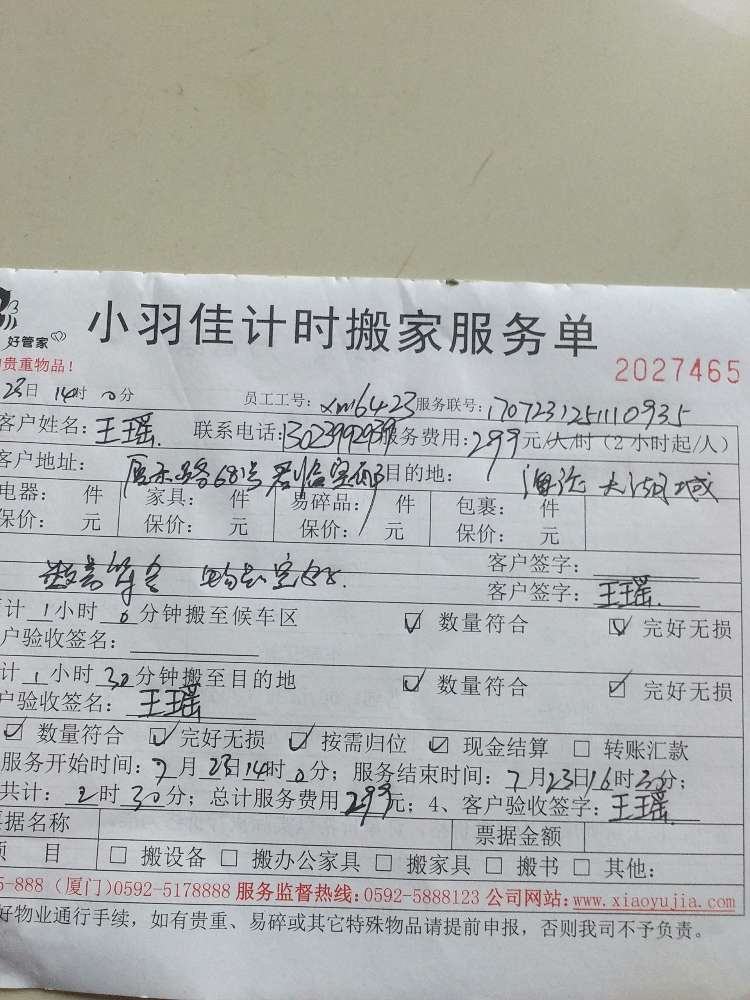 小羽佳计时搬家服务单
好管家
贵重物品!
2027465
23日 14时 0分 员工工号: xm6423 服务联号: 1707231251110935
客户姓名: 王瑶 联系电话: 13023992939 服务费用: 299元/人/时 (2小时起/人)
客户地址: 68号君临宝邸 目的地: 大湖城
电器: 件 家具: 件 易碎品: 件 包裹: 件
保价: 元 保价: 元 保价: 元 保价: 元
客户签字:
完好. 客户签字: 王瑶.
计 1 小时 0 分钟搬至候车区 ☑ 数量符合 ☑ 完好无损
户验收签名:
计 1 小时 30 分钟搬至目的地 ☑ 数量符合 ☑ 完好无损
户验收签名: 王瑶
☑ 数量符合 ☑ 完好无损 ☑ 按需归位 ☑ 现金结算 □ 转账汇款
服务开始时间: 7月23日14时0分; 服务结束时间: 7月23日16时30分;
共计: 2时30分; 总计服务费用 299元; 4、客户验收签字: 王瑶.
票据名称 票据金额
项 目 □ 搬设备 □ 搬办公家具 □ 搬家具 □ 搬书 □ 其他:
5-888 (厦门)0592-5178888 服务监督热线:0592-5888123 公司网站:www.xiaoyujia.com
好物业通行手续，如有贵重、易碎或其它特殊物品请提前申报，否则我司不予负责。